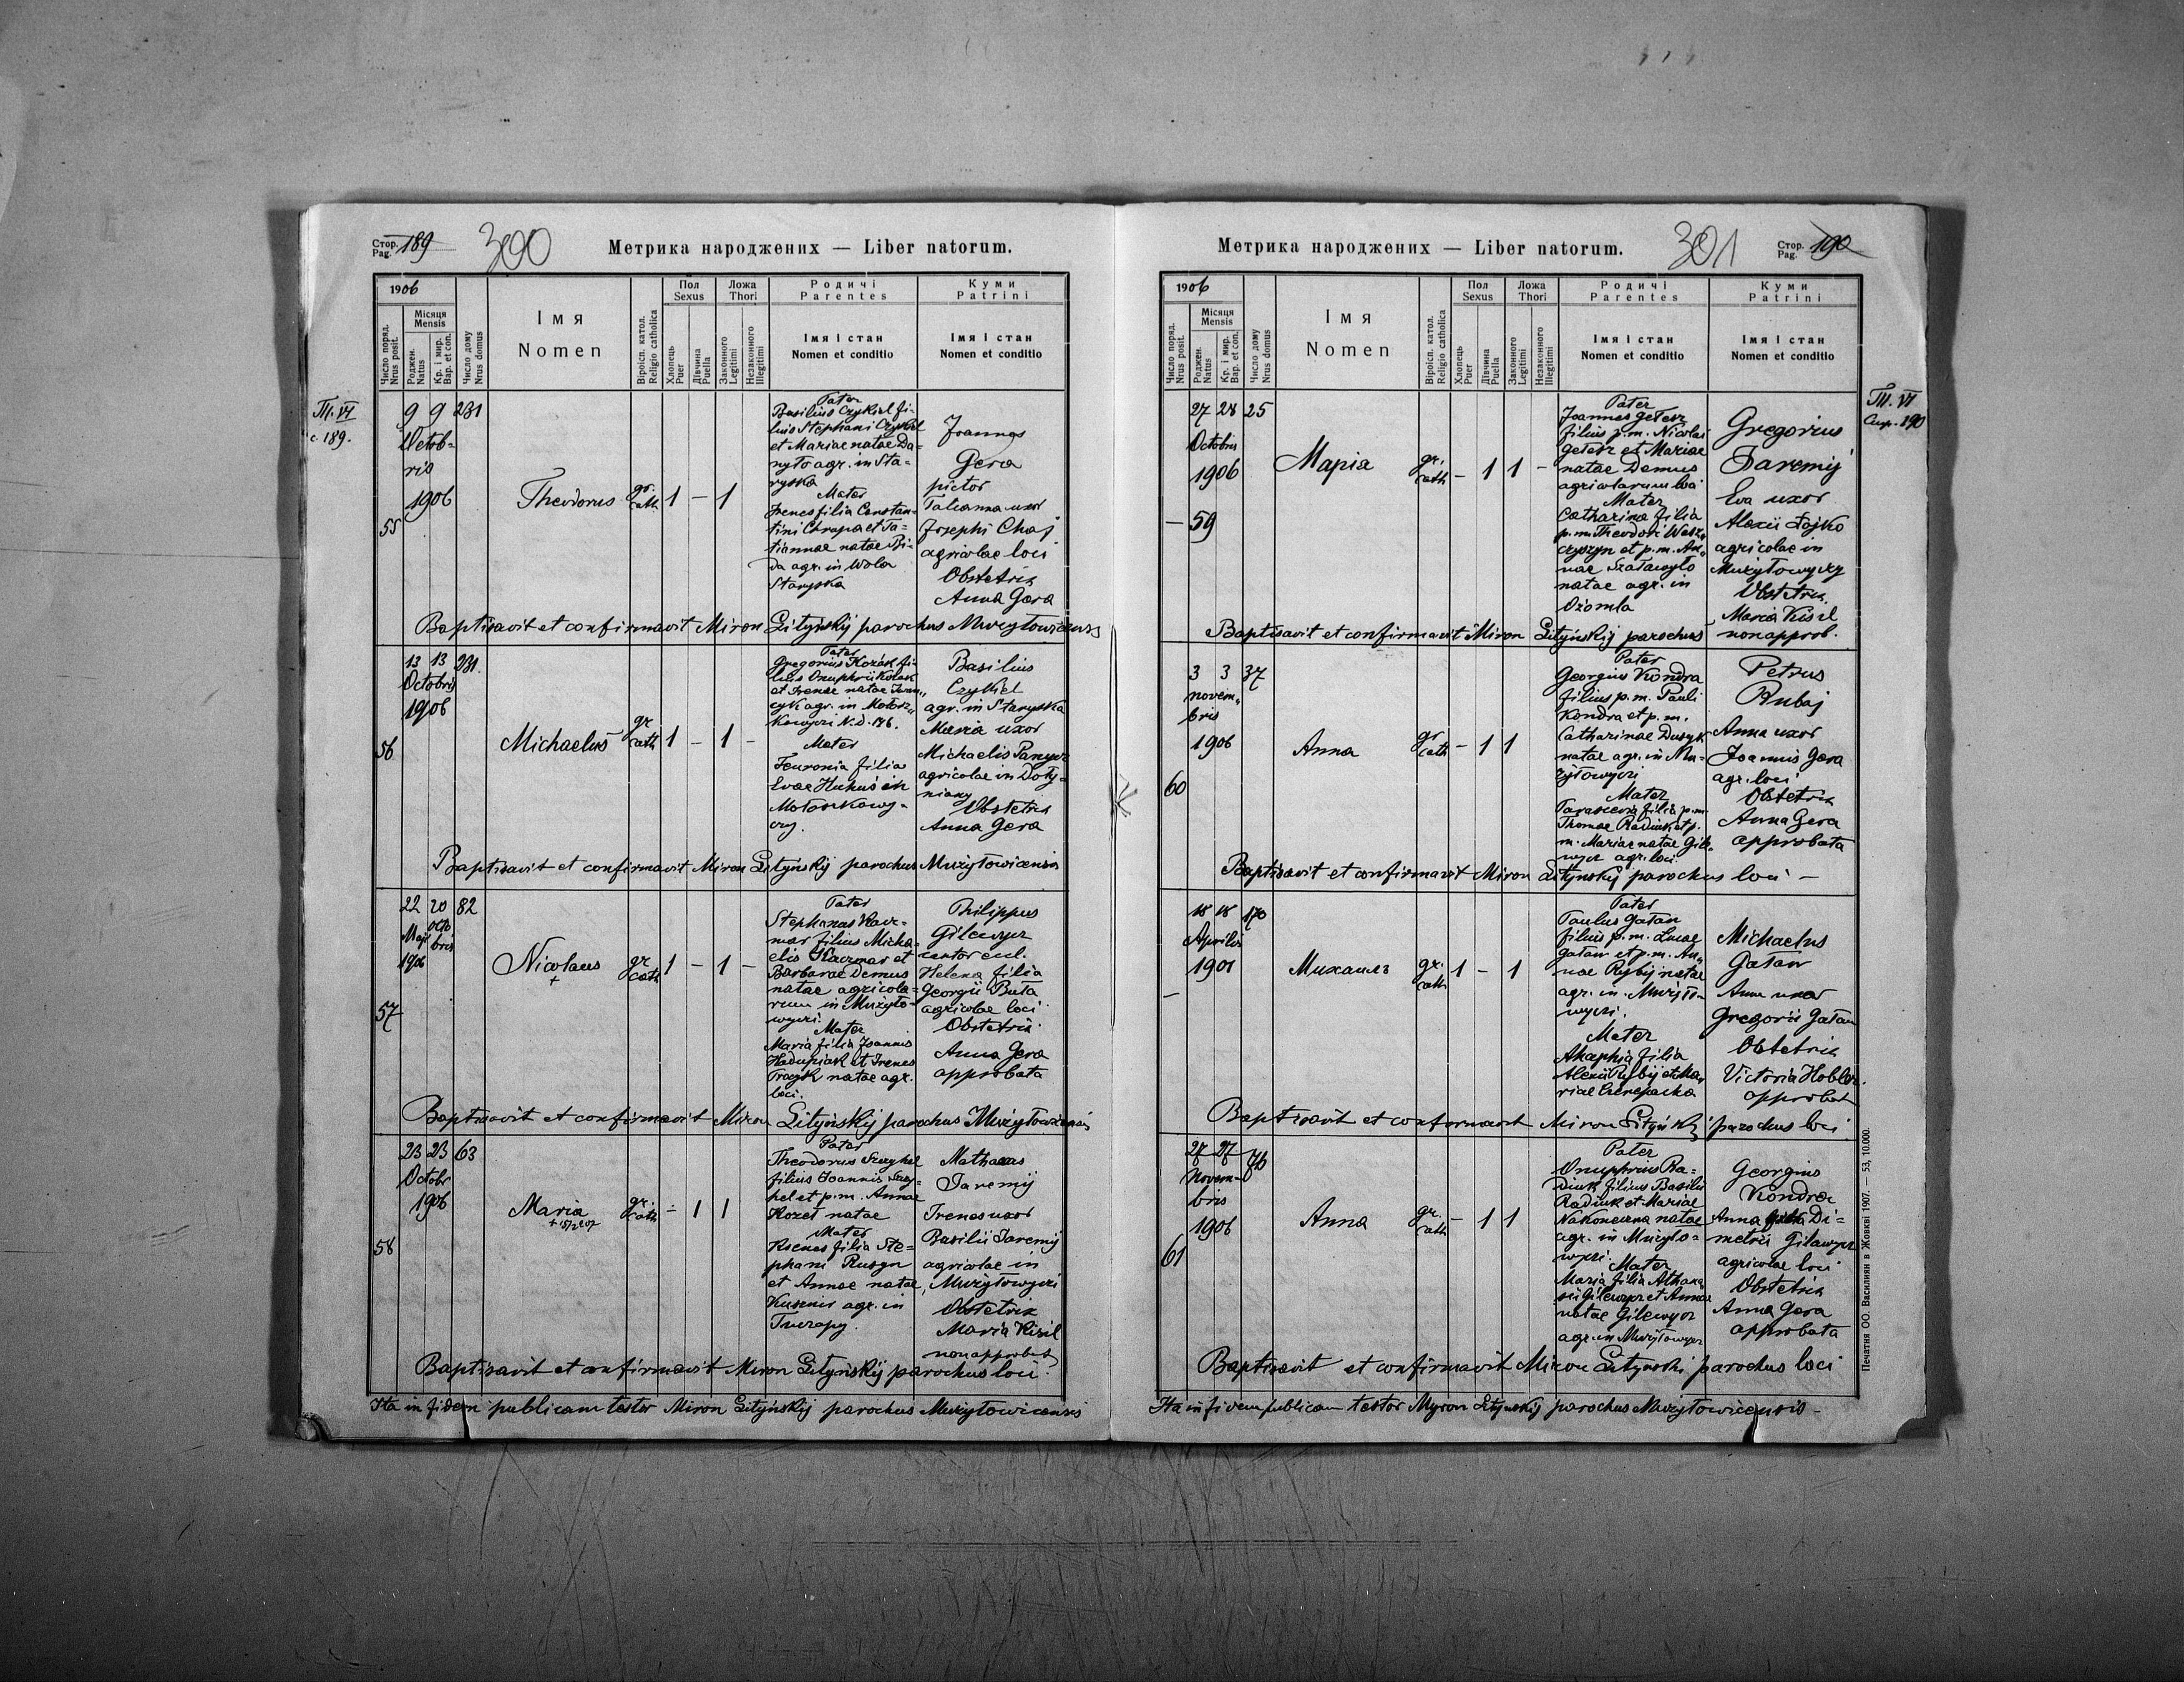 Стор. 189
Pag.
300
Метрика народжених — Liber natorum.
1906
Число поряд.
Nrus posit.
Місяця
Mensis
Роджен.
Natus
Кр. і мир.
Bap. et con.
Число дому
Nrus domus
Імя
Nomen
Віроісп. катол.
Religio catholica
Пол
Sexus
Хлопець
Puer
Дівчина
Puella
Ложа
Thori
Законного
Legitimi
Незаконного
Illegitimi
Родичі
Parentes
Імя і стан
Nomen et conditio
Куми
Patrini
Імя і стан
Nomen et conditio
Т. VI
с. 189.
55
9 9 231
Octob-
ris
1906
Theodorus
gr.
cath
1 — 1
Pater
Basilius Czykiel fi-
lius Stephani Czykiel
et Mariae natae Da-
nyło agr. in Sta-
ryska
Mater
Irenes filia Constan-
tini Chrapa et Ta-
tiannae natae
da agr. in Wola
Staryska
Joannes
Gera
pictor
Tatianna uxor
Josephi Chaj
agricolae loci
Obstetrix
Anna Gera
Baptisavit et confirmavit Miron Lityńskij parochus Mużyłowicensis
56
13 13 231.
Octobris
1906
Michaelus
gr
cath
1 — 1 —
Pater
Gregorius Kozak fi-
lius Onuphrii Kozak
et Irenae natae Iwan-
cyk agr. in Mołosz-
kowyczi N.d. 176.
Mater
Feuronia filia
Evae Hukuś in
Mołoszkowy-
czy.
Basilius
Czykiel
agr. in Staryska
Maria uxor
Michaelis
agricolae in Doły-
niany
Obstetrix
Anna Gera
Baptisavit et confirmavit Miron Lityńskij parochus Mużyłowicensis
57
22 20 82
Maji Octo
bris
1906
Nicolaus
+
gr
cath
1 — 1 —
Pater
Stephanus Kacz-
mar filius Micha-
elis Kaczmar et
Barbarae Demus
natae agricola-
rum in Mużyło-
wyczi.
Mater
Maria filia Joannis
Hadupiak et Irenes
natae agr.
loci.
Philippus
Gilewycz
cantor eccl.
Helena filia
Georgii Buta
agricolae loci
Obstetrix
Anna Gera
approbata
Baptisavit et confirmavit Miron Lityńskij parochus Mużyłowicensis
58
23 23 63
Octobr
1906
Maria
gr.
cath
— 1 1
Pater
Theodorus
filius Joannis
pel et p.m. Annae
Kozeł natae
Mater
Ksenes filia Ste-
phani Rusyn
et Annae natae
Kusznir agr. in
Tuczapy.
Mathaeus
Jaremij
Irenes uxor
Basilii Jaremij
agricolae in
Mużyłowyczi
Obstetrix
Maria Kisil
non approbata
Baptisavit et confirmavit Miron Lityńskij parochus loci.
Ita in fidem publicam testor Miron Lityńskij parochus Mużyłowicensis
Метрика народжених — Liber natorum.
301
Стор. 190
Pag.
1906
Число поряд.
Nrus posit.
Місяця
Mensis
Роджен.
Natus
Кр. і мир.
Bap. et con.
Число дому
Nrus domus
Імя
Nomen
Віроісп. катол.
Religio catholica
Пол
Sexus
Хлопець
Puer
Дівчина
Puella
Ложа
Thori
Законного
Legitimi
Незаконного
Illegitimi
Родичі
Parentes
Імя і стан
Nomen et conditio
Куми
Patrini
Імя і стан
Nomen et conditio
Т. VI
Стр. 190
59
27 28 25
Octobris
1906
Марія
gr.
cath
— 1 1 —
Pater
Joannes Geterz
filius p.m. Nicolai
Geterz et Mariae
natae Demus
agricolarum loci
Mater
Catharina filia
p.m. Theodori Wasz-
czyszyn et p.m. An-
nae
natae agr. in
Ożomla
Gregorius
Jaremij
Eva uxor
Alexii Łojko
agricolae in
Mużyłowyczy
Obstetrix.
Maria Kisil
non approb.
Baptisavit et confirmavit Miron Lityńskij parochus
60
3 3 37
novem-
bris
1906
Anna
gr
cath
— 1 1
Pater
Georgius Kondra
filius p.m. Pauli
Kondra et p.m.
Catharinae Dusyk
natae agr. in Mu-
żyłowyczi
Mater
Parascevia filia p.m.
Thomae Radiuk et p.
m. Mariae natae Gile-
wycz agr. loci.
Petrus
Rubaj
Anna uxor
Joannis Gera
agr. loci
Obstetrix
Anna Gera
approbata
Baptisavit et confirmavit Miron Lityńskij parochus loci —
—
18 18 170
Aprilis
1901
Михаилъ
gr.
cath
1 — 1
Pater
Paulus Gałan
filius p.m. Lucae
Gałan et p.m. An-
nae Rybij natae
agr. in Mużyło-
wyczi.
Mater
Ahaphia filia
Alexii Rybij et Ma-
riae Czerepacha
Michaelus
Gałan
Anna uxor
Gregorii Gałan
Obstetrix
Victoria Hobler.
approbata
Baptisavit et confirmavit Miron Lityńskij parochus loci
61
27 27 76
Novem-
bris
1906
Anna
gr.
cath
— 1 1
Pater
Onuphrius Ra-
diuk filius Basilii
Radiuk et Mariae
Nakoneczna natae
agr. in Mużyło-
wyczi.
Mater
Maria filia Athana-
sii Gilewycz et Annae
natae Gilewycz
agr. in Mużyłowyczi
Georgius
Kondra
Anna filia Di-
metrii Gilewycz
agricolae loci
Obstetrix
Anna Gera
approbata
Baptisavit et confirmavit Miron Lityński parochus loci
Ita in fidem publicam testor Myron Lityńskij parochus Mużyłowicensis —
Печатня ОО. Василиян в Жовкві 1907. — 53, 10.000.